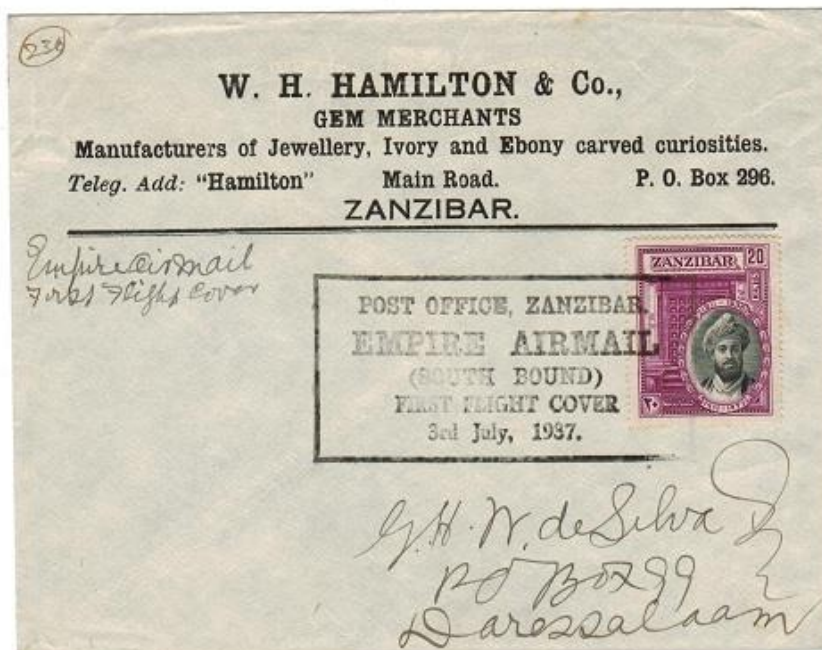 23A
W. H. HAMILTON & Co.,
GEM MERCHANTS
Manufacturers of Jewellery, Ivory and Ebony carved curiosities.
Teleg. Add: "Hamilton" Main Road. P. O. Box 296.
ZANZIBAR.
Empire airmail
First Flight Cover
ZANZIBAR 20
٢٠
POST OFFICE, ZANZIBAR.
EMPIRE AIRMAIL
(SOUTH BOUND)
FIRST FLIGHT COVER
3rd July, 1937.
G. H. W. de Silva
PO Box 99
Daressalaam